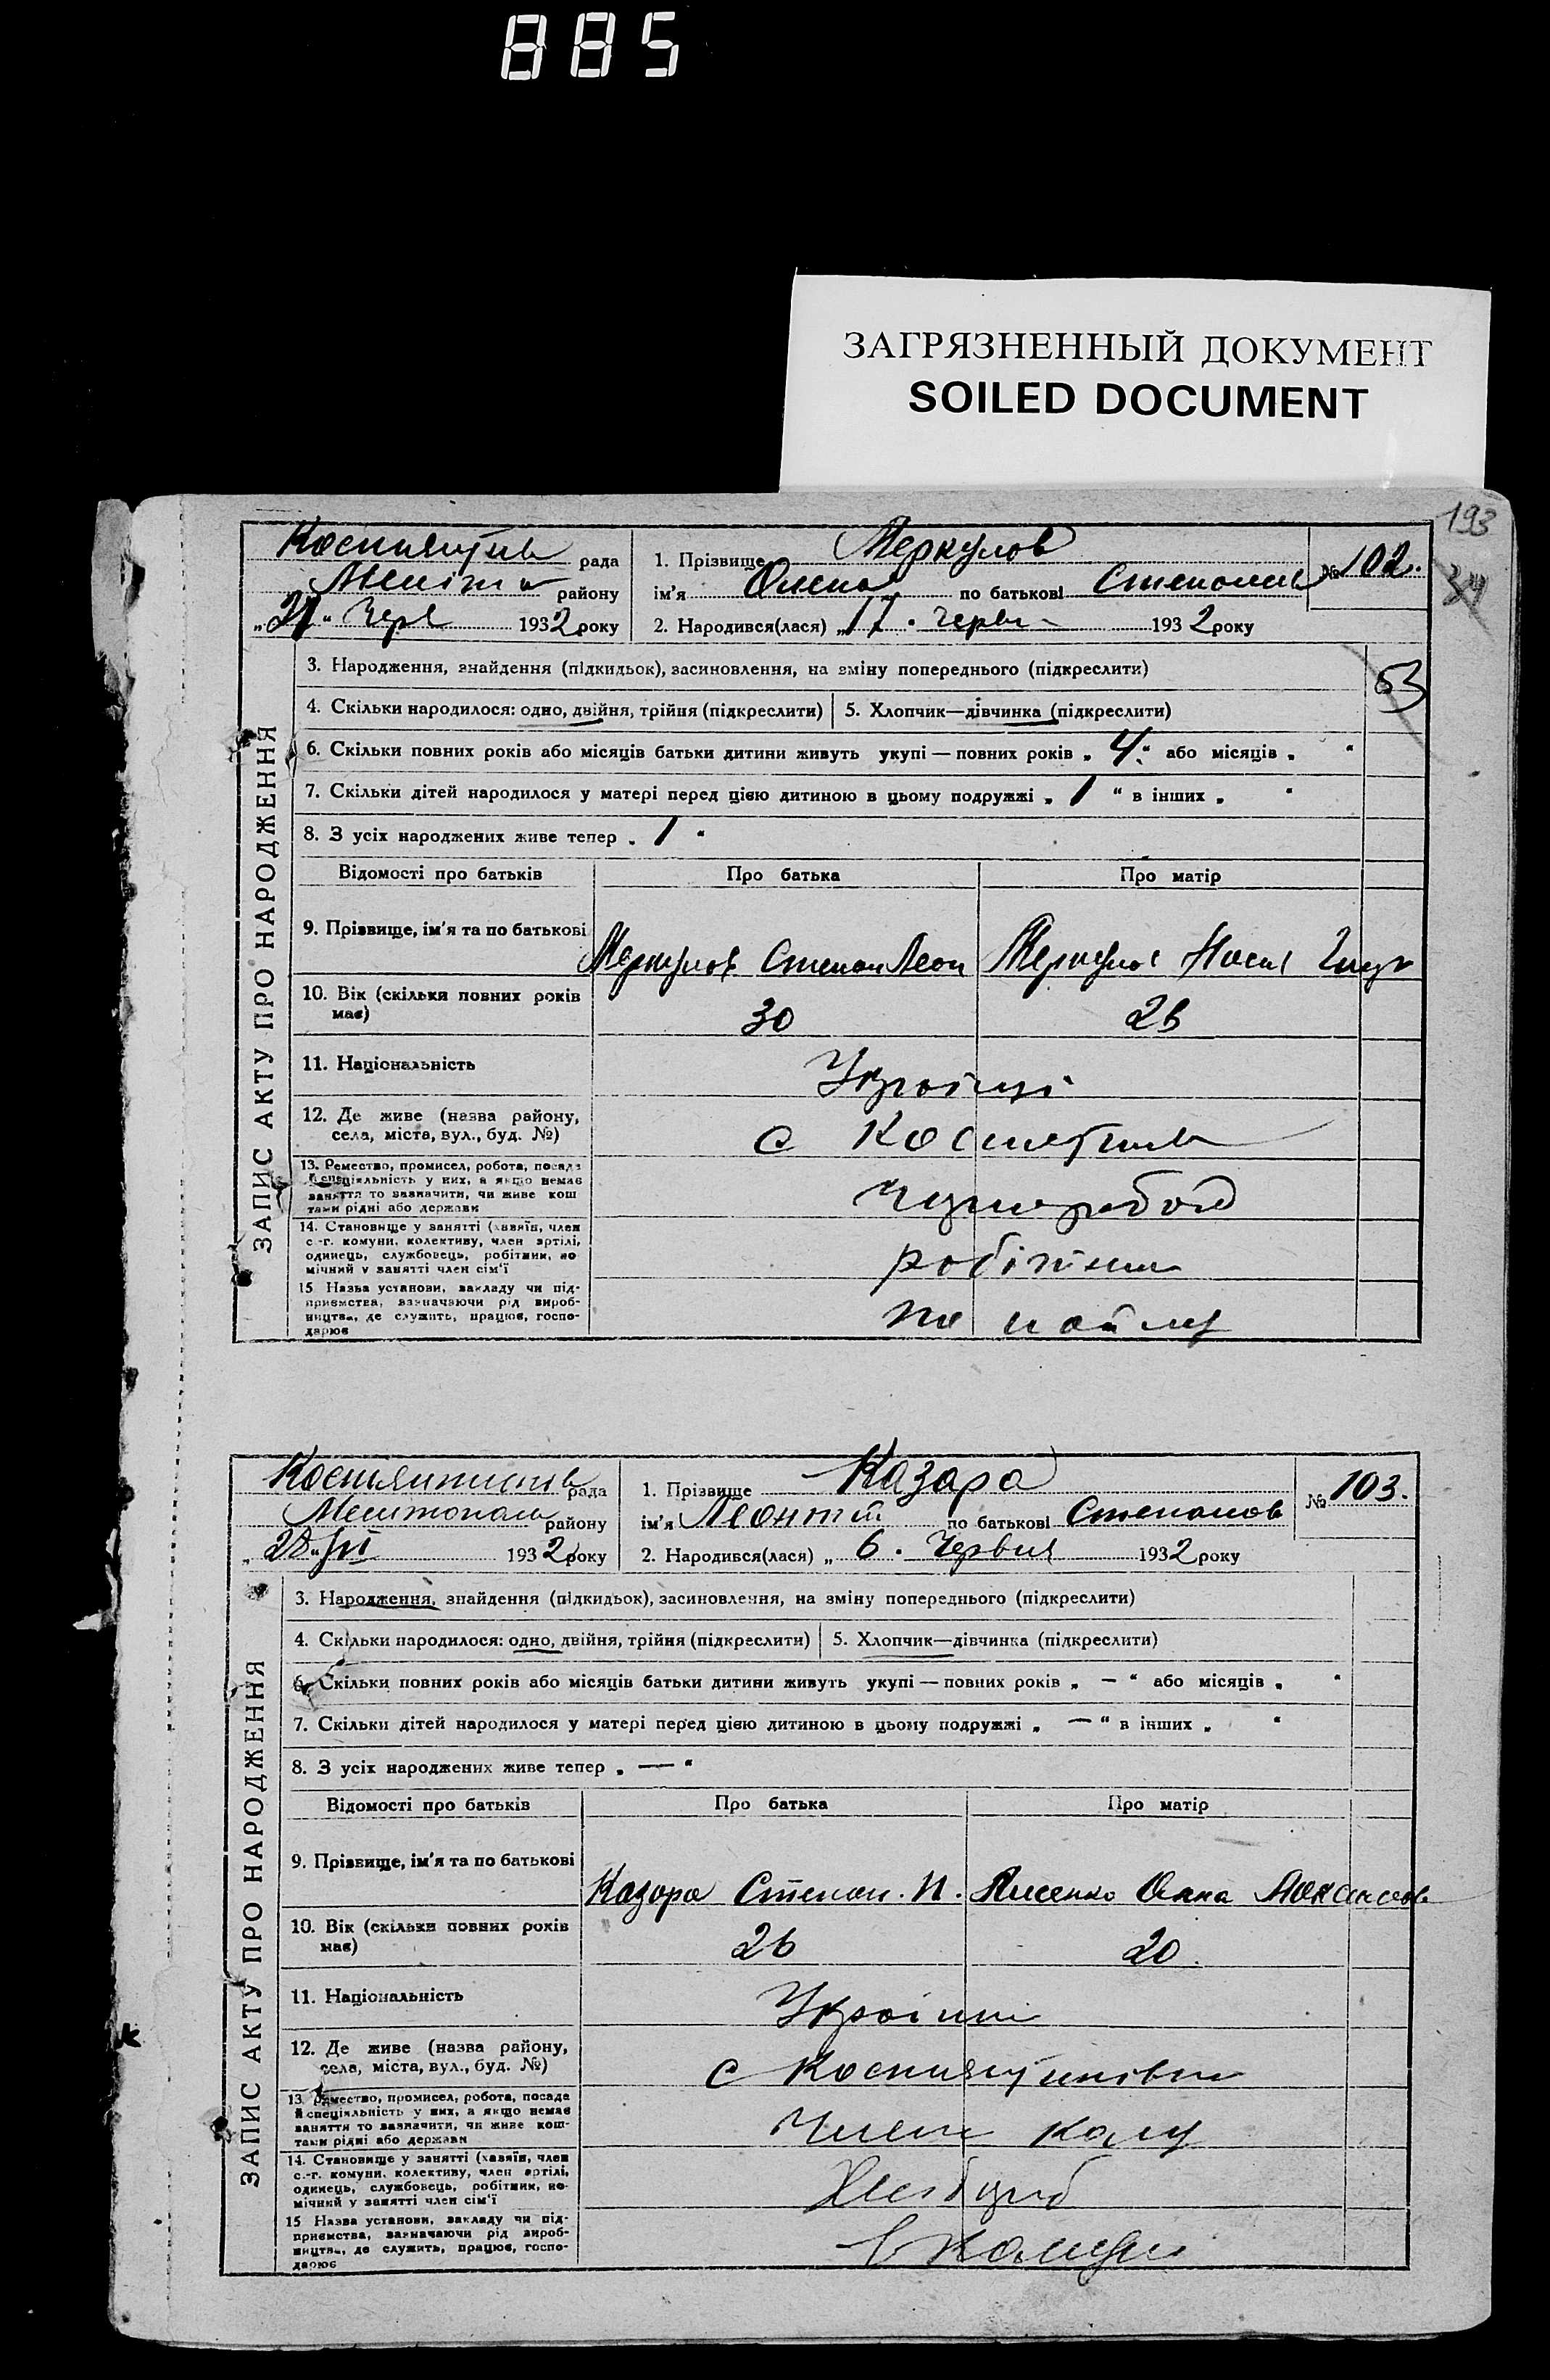 885
ЗАГРЯЗНЕННЫЙ ДОКУМЕНТ
SOILED DOCUMENT
193
ЗАПИС АКТУ ПРО НАРОДЖЕННЯ
рада
району
„21“ Черв 1932 року
1. Прізвище Меркулов
ім'я Олена по батькові
№ 102.
2. Народився(лася) „17“ черв 1932 року
3. Народження, знайдення (підкидьок), засиновлення, на зміну попереднього (підкреслити)
53
4. Скільки народилося: одно, двійня, трійня (підкреслити) 5. Хлопчик—дівчинка (підкреслити)
6. Скільки повних років або місяців батьки дитини живуть укупі — повних років „4“ або місяців „ “
7. Скільки дітей народилося у матері перед цією дитиною в цьому подружжі „1“ в інших „ “
8. З усіх народжених живе тепер „1“
Відомості про батьків Про батька Про матір
9. Прізвище, ім'я та по батькові Меркулов Степан Леон
10. Вік (скільки повних років має) 30 26
11. Національність Українці
12. Де живе (назва району, села, міста, вул., буд. №) с
13. Ремество, промисел, робота, посада
й спеціяльність у них, а якщо немає
заняття то зазначити, чи живе кош
тами рідні або держави
14. Становище у занятті (хазяїн, член
с.-г. комуни, колективу, член артілі,
одинець, службовець, робітник, по-
мічний у занятті член сім'ї
робітник
15 Назва установи, закладу чи під-
приємства, зазначаючи рід вироб-
ництва, де служить, працює, госпо-
дарює
по найму
ЗАПИС АКТУ ПРО НАРОДЖЕННЯ
рада
району
„28“ VI 1932 року
1. Прізвище Казара
ім'я Леонтій по батькові Степанов
№ 103.
2. Народився(лася) „6“ Червня 1932 року
3. Народження, знайдення (підкидьок), засиновлення, на зміну попереднього (підкреслити)
4. Скільки народилося: одно, двійня, трійня (підкреслити) 5. Хлопчик—дівчинка (підкреслити)
6. Скільки повних років або місяців батьки дитини живуть укупі — повних років „—“ або місяців „ “
7. Скільки дітей народилося у матері перед цією дитиною в цьому подружжі „—“ в інших „ “
8. З усіх народжених живе тепер „—“
Відомості про батьків Про батька Про матір
9. Прізвище, ім'я та по батькові Казара Степан. И. Лисенко Анна
10. Вік (скільки повних років має) 26 20.
11. Національність Українці
12. Де живе (назва району, села, міста, вул., буд. №) с
13. Ремество, промисел, робота, посада
й спеціяльність у них, а якщо немає
заняття то зазначити, чи живе кош-
тами рідні або держави
Член
14. Становище у занятті (хазяїн, член
с.-г. комуни, колективу, член артілі,
одинець, службовець, робітник, по-
мічний у занятті член сім'ї
15 Назва установи, закладу чи під-
приємства, зазначаючи рід вироб-
ництва, де служить, працює, госпо-
дарює